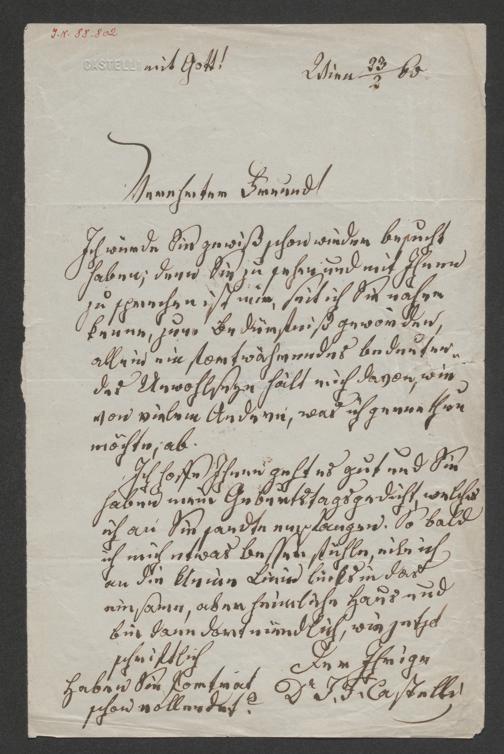 J.N. 88.802
CASTELLI mit Gott!
Wien 23/2 60
Verehrter Freund!
Ich würde Sie gewiß schon wieder besucht
haben; denn Sie zu sehen und mit Ihnen
zu sprechen ist mir, seit ich Sie näher
kenne, zum Bedürfniß geworden,
allein ein fortwährendes bedeuten-
des Unwohlseyn hält mich davon, wie
von vielem Andern, was ich gerne thun
möchte, ab.
Ich hoffe, Ihnen geht es gut und Sie
haben mein Geburtstagsgedicht, welches
ich an Sie sandte empfangen. So bald
ich mich etwas besser fühle, eile ich
an die kleine Linie links in das
einsame, aber heimliche Haus und
bin dann dort mündlich, wie jetzt
schriftlich
Der Ihrige
Dr J. F. Castelli
Haben Sie Portrait
schon vollendet?